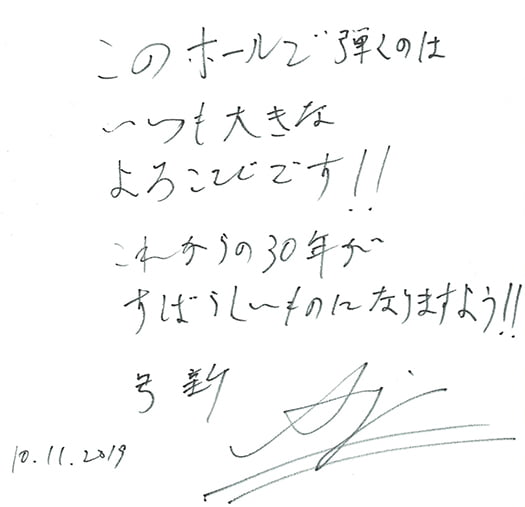 このホールで弾くのは
いつも大きな
よろこびです!!
これからの30年が
すばらしいものになりますよう!!
10.11.2019